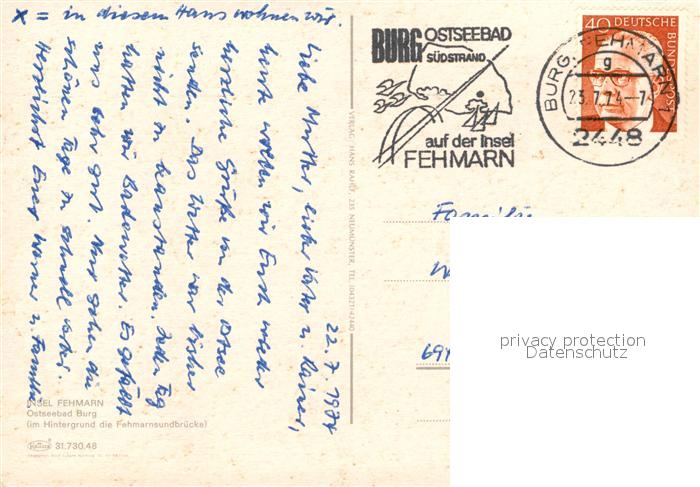 x = in diesem Haus wohnen wir.
22.7.1974
Liebe Mutter, lieber Vater u. Rainer,
heute wollen wir Euch wieder
herzliche Grüße von der Ostsee
senden. Das Wetter war bisher
nicht zu beanstanden. Jeden Tag
hatten wir Badewetter. Es gefällt
uns sehr gut. Nur gehen die
schönen Tage zu schnell vorbei.
Herzlichst Euer Werner u. Familie
INSEL FEHMARN
Ostseebad Burg
(im Hintergrund die Fehmarnsundbrücke)
31.730.48
VERLAG HANS 235 NEUMÜNSTER, TEL. (04321)
BURG OSTSEEBAD
SÜDSTRAND
auf der Insel
FEHMARN
40 DEUTSCHE BUNDESPOST
BURG, FEHMARN 1
g
23.7.74--7
2448
Familie
694
privacy protection
Datenschutz